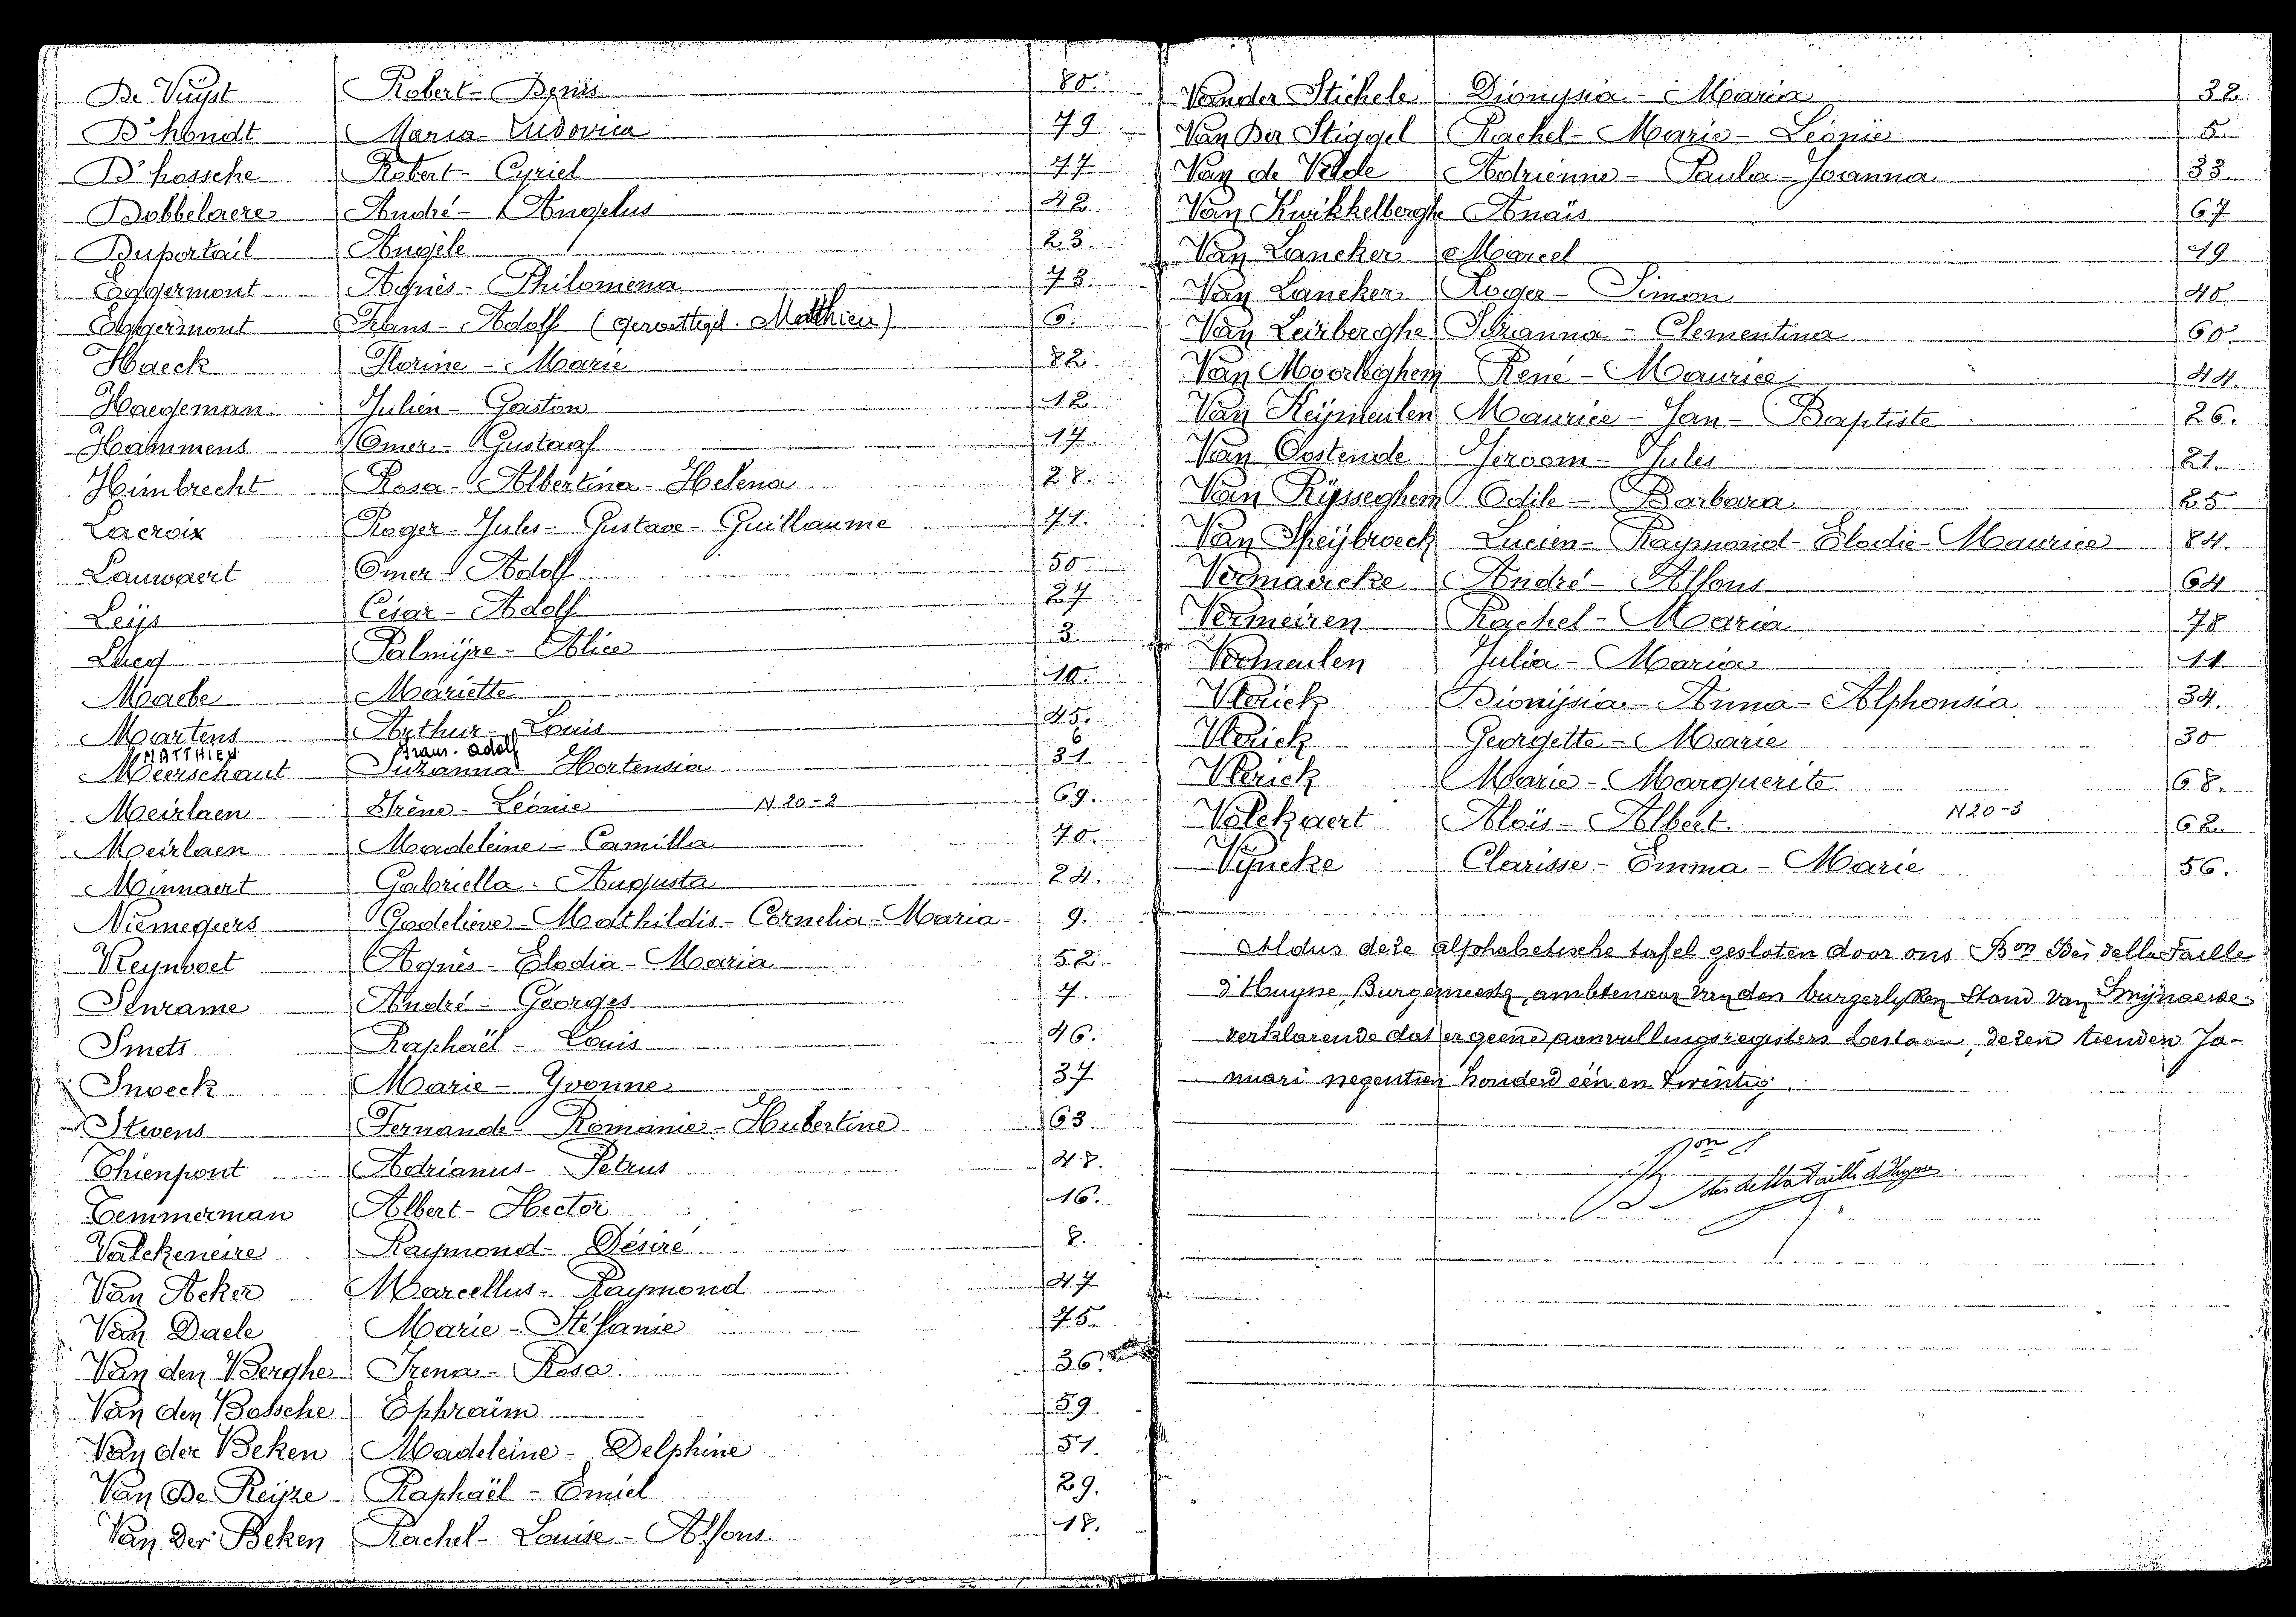 De Vuyst Robert - Denis 80.
D'hondt Maria - Ludovica 79
D'hossche Robert - Cyriel 77
Dobbelaere André - Angelus 42.
Duportail Angèle 23.
Eggermont Agnès - Philomena 73.
Eggermont Frans - Adolf (gewettigd. Matthieu) 6.
Haeck Florine - Marie 82.
Haegeman Julien - Gaston 12.
Hammens Omer - Gustaaf 17.
Heimbrecht Rosa - Albertina - Helena 28.
Lacroix Roger - Jules - Gustave - Guillaume 71.
Lauwaert Omer - Adolf 50
Leijs César - Adolf 27
Palmijre - Alice 3
Maebe Mariette 10.
Martens Arthur - Louis 45.
MATTHIEU Frans. Adolf 6
Meerschaut Suzanna - Hortensia 31.
Meirlaen Irène - Léonie N 20-2 69.
Meirlaen Madeleine - Camilla 70.
Minnaert Gabriella - Augusta 24.
Niemegeers Godelieve - Mathildis - Cornelia - Maria 9.
Reynvoet Agnès - Elodia - Maria 52.
Schrame André - Georges 7.
Smets Raphaël - Louis 46.
Snoeck Marie - Yvonne 37
Stevens Fernande - Romanie - Hubertine 63.
Thienpont Adrianus - Petrus 48.
Temmerman Albert - Hector 16.
Valckeneire Raymond - Désiré 8.
Van Acker Marcellus - Raymond 47
Van Daele Marie - Stéfanie 75.
Van den Berghe Irena - Rosa 36.
Van den Bossche Ephraïm 59
Van der Beken Madeleine - Delphine 51.
Van De Keijze Raphaël - Emiel 29.
Van Der Beken Rachel - Louise - Alfons. 18.
Vander Stichele Dionysia - Maria 32.
Van Der Stiggel Rachel - Marie - Léonie 5
Van de Velde Adrienne - Paula - Joanna 33.
Van Kwikkelberghe Anaïs 67
Van Lancker Marcel 19
Van Lancker Roger - Simon 40
Van Leirberghe Suzanna - Clementina 60.
Van Moorleghem René - Maurice 44.
Van Keijmeulen Maurice - Jan - Baptiste 26.
Van Oostende Jeroom - Jules 21.
Van Rijsseghem Odile - Barbara 25
Van Speijbroeck Lucien - Raymond - Elodie - Maurice 84.
Vermaercke André - Alfons 64
Vermeiren Rachel - Maria 78
Vermeulen Julia - Maria 11
Verick Dionijsia - Anna - Alphonsia 34.
Verick Georgette - Marie 30
Verick Marie - Marguerite 68.
Volckaert Aloïs - Albert N 20-3 62.
Vyncke Clarisse - Emma - Marie 56.
Aldus deze alphabetische tafel gesloten door ons Bon Des della Faille
d'Huysse, Burgemeester, ambtenaar van den burgerlyken Stand van Smÿnaerde
verklarende dat er geene aanvullingsregisters bestaan, dezen tienden Ja-
nuari negentien honderd een en twintig.
Bon des della Faille d'Huysse